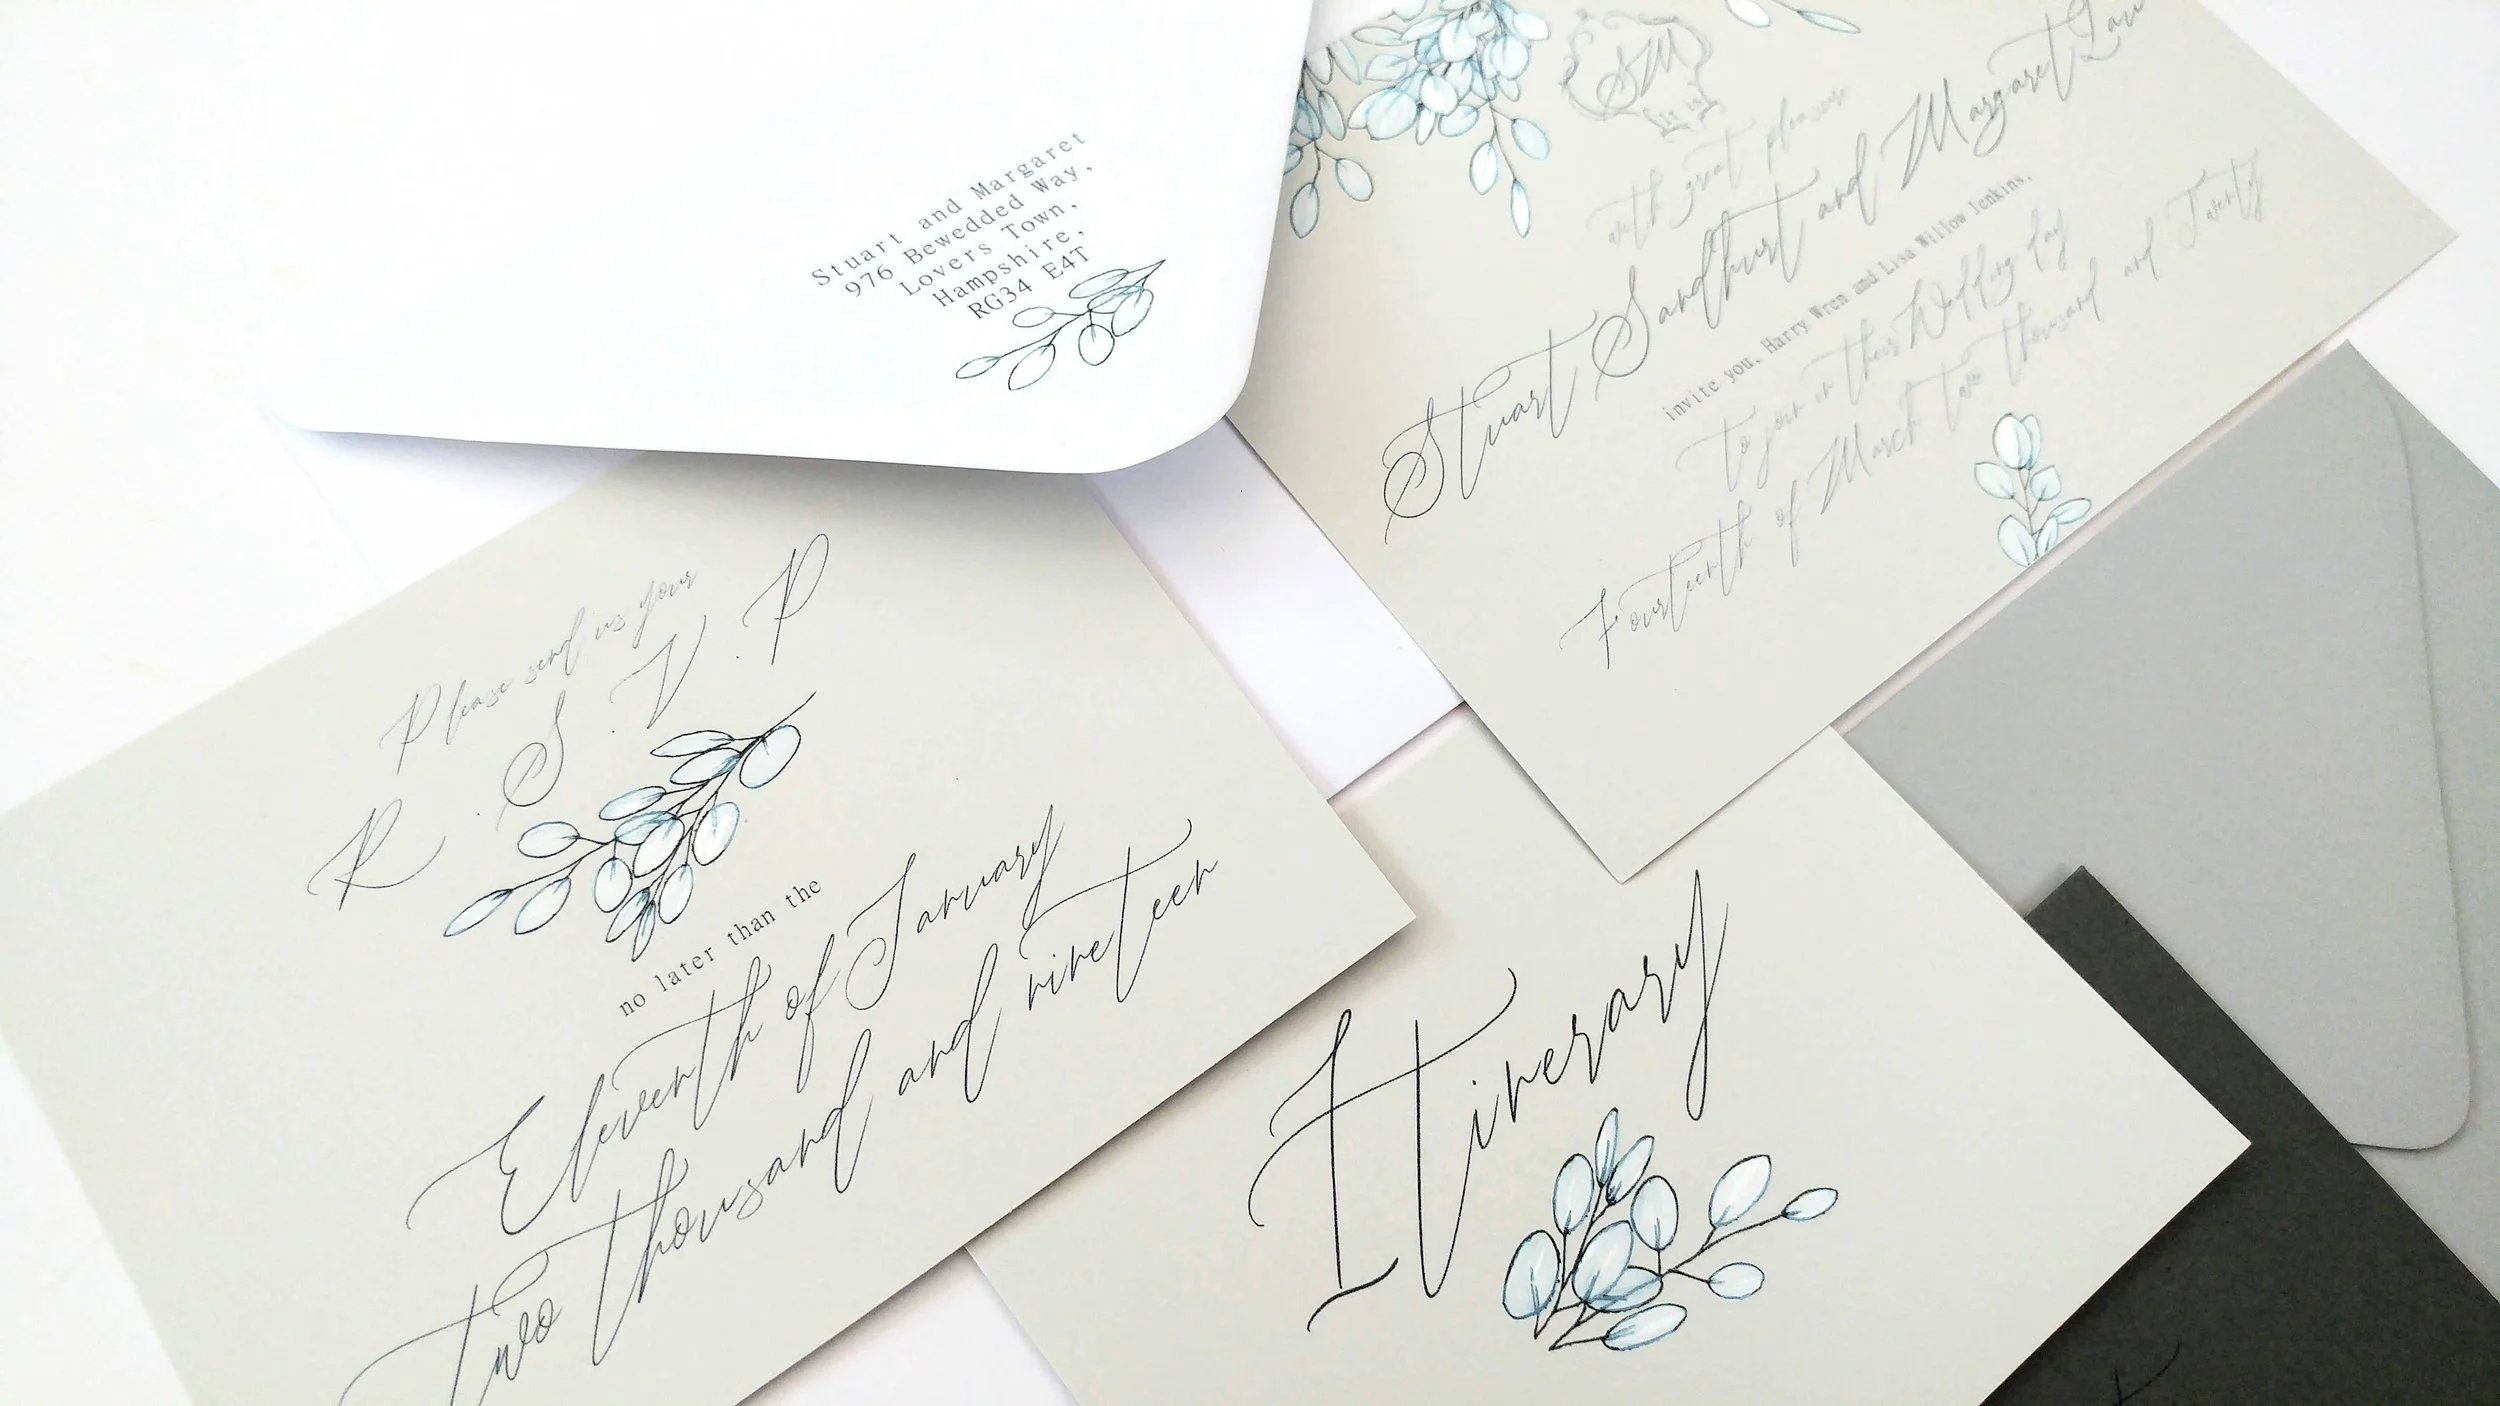 Stuart and Margaret
976 Bewedded Way,
Lovers Town,
Hampshire,
RG34 E4T
SM
it is
with great pleasure
Stuart Sandhurst and Margaret Law
invite you, Harry Wren and Lisa Willow Jenkins,
to join in their Wedding day
Fourteenth of March two thousand and Twenty
Please send us your
R . S . V . P
no later than the
Eleventh of January
two thousand and nineteen
Itinerary